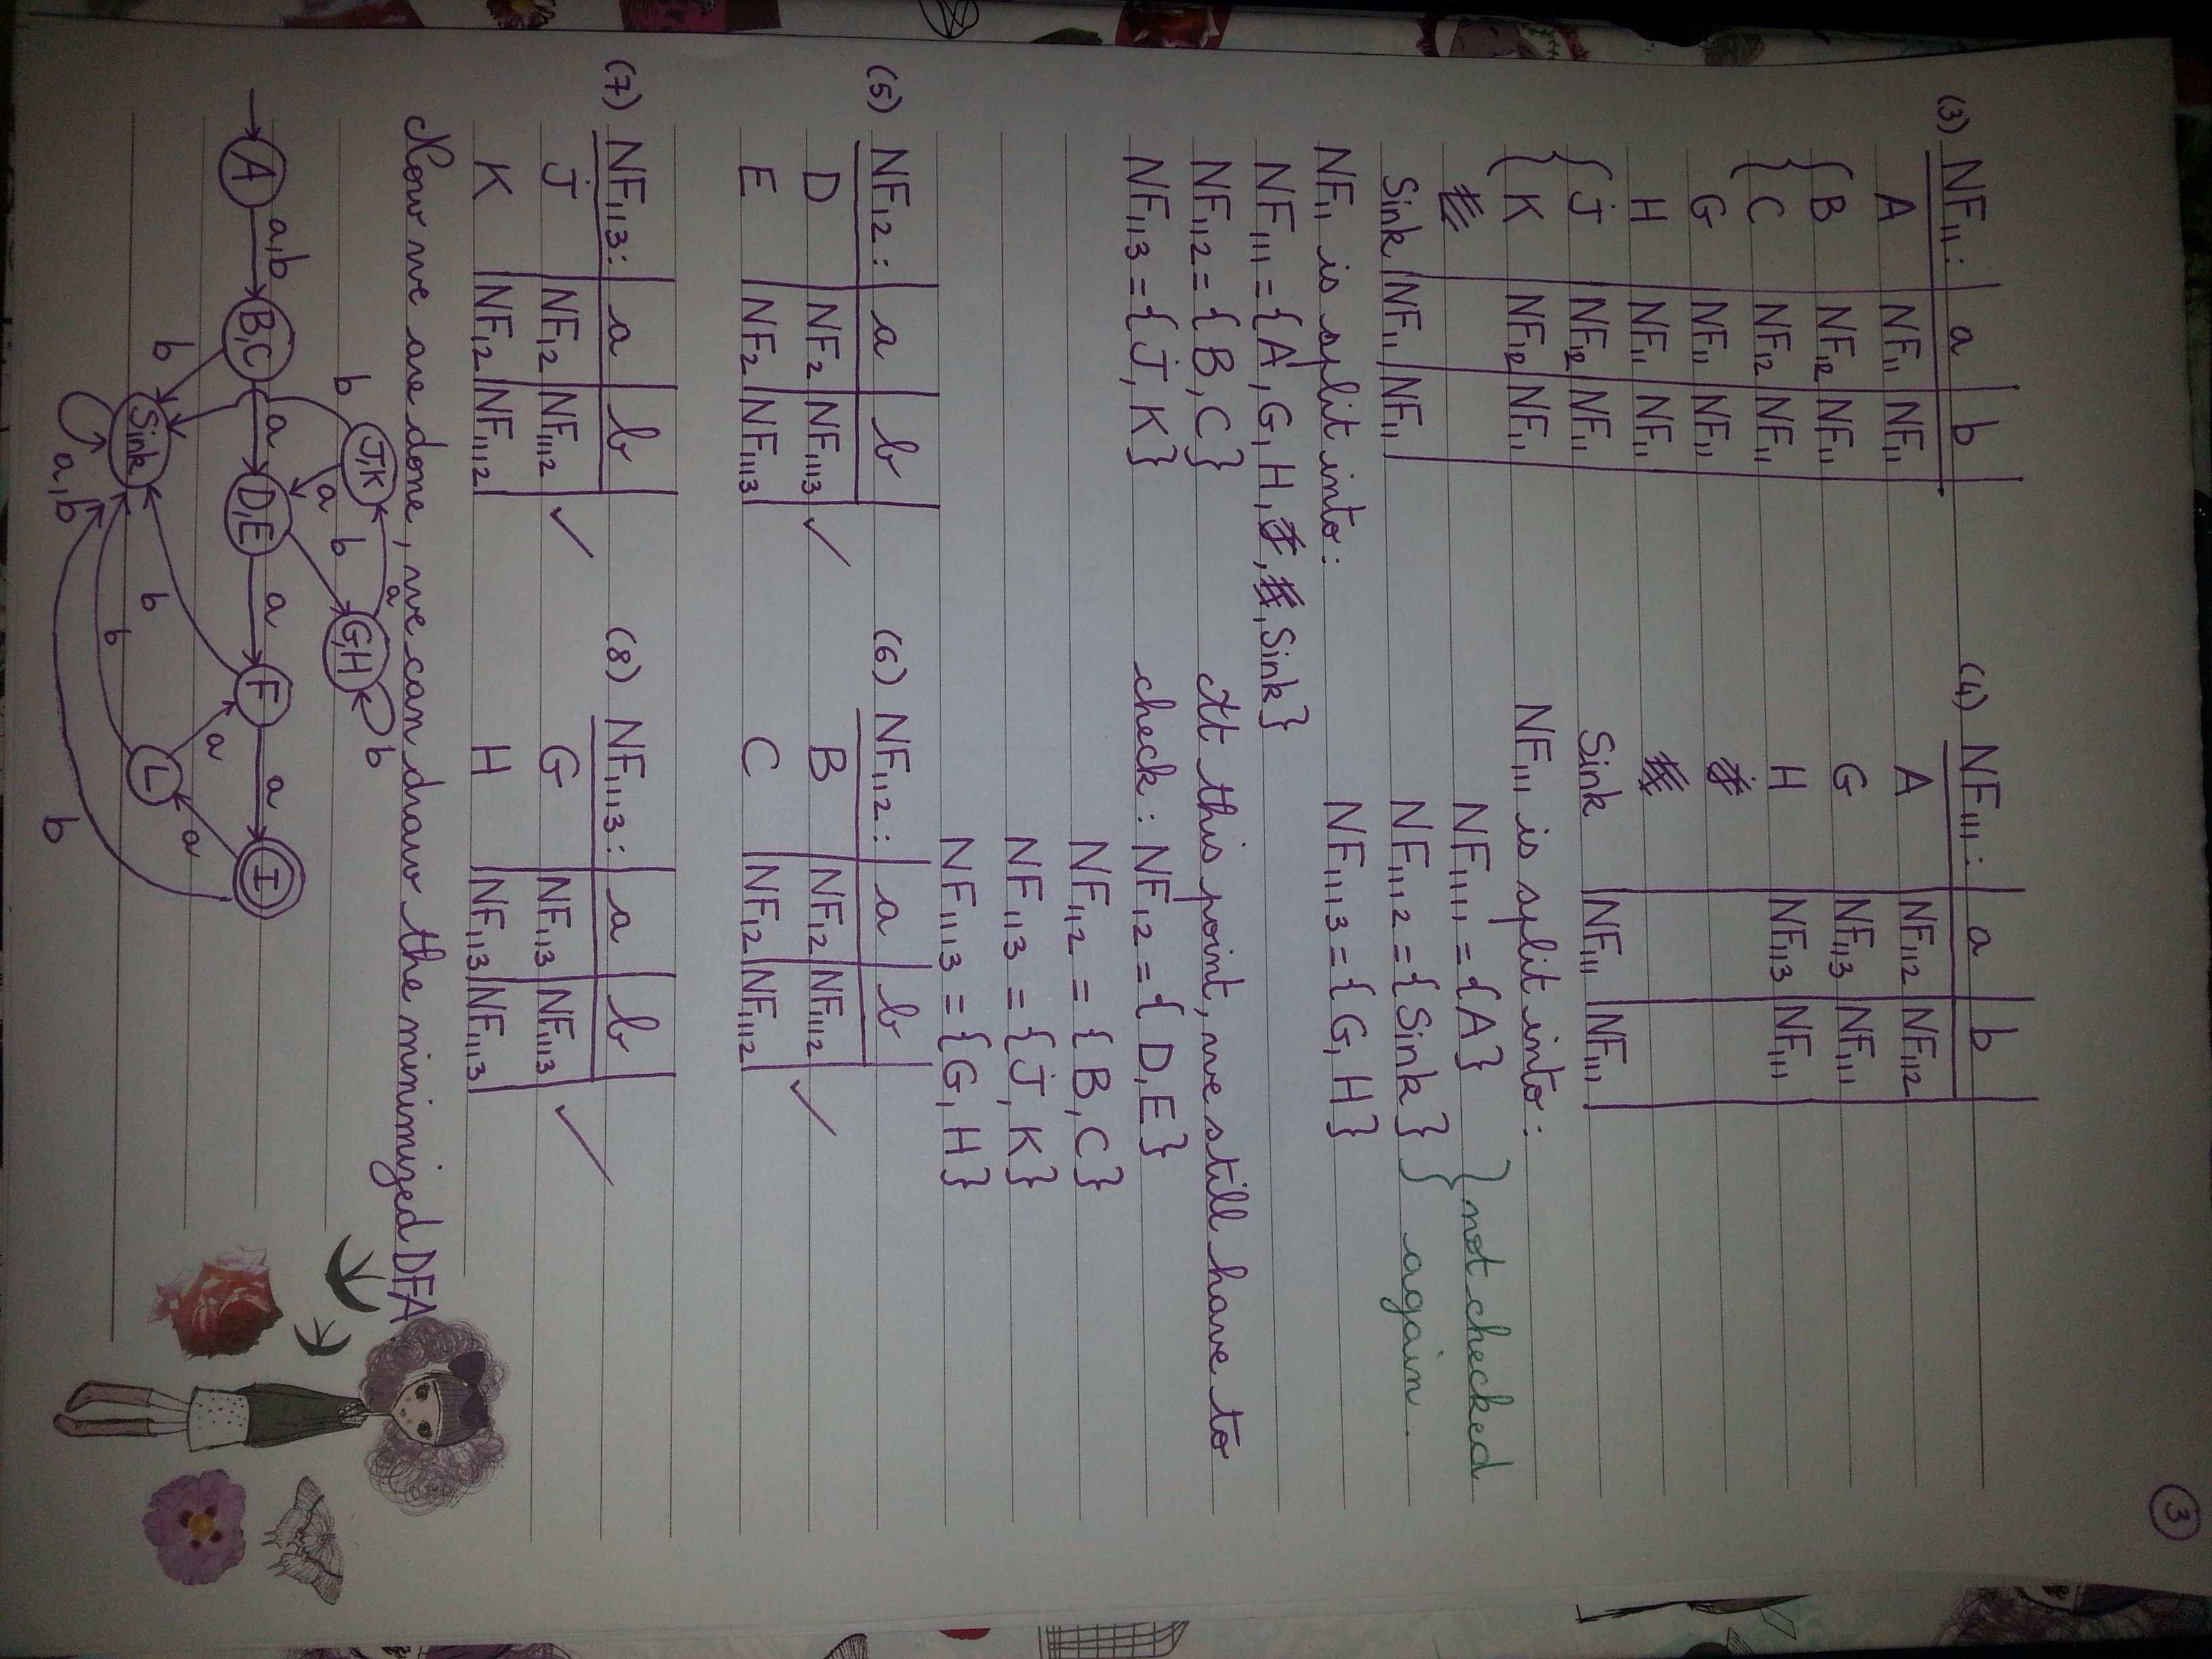 3
(3) NF₁₁: a b
A NF₁₁ NF₁₁
{ B NF₁₂ NF₁₁
{ C NF₁₂ NF₁₁
G NF₁₁ NF₁₁
H NF₁₁ NF₁₁
{ J NF₁₂ NF₁₁
{ K NF₁₂ NF₁₁
Sink NF₁₁ NF₁₁
NF₁₁ is split into:
NF₁₁₁ = {A, G, H, Sink}
NF₁₁₂ = {B, C}
NF₁₁₃ = {J, K}
(4) NF₁₁₁: a b
A NF₁₁₂ NF₁₁₂
G NF₁₁₃ NF₁₁₁
H NF₁₁₃ NF₁₁₁
Sink NF₁₁₁ NF₁₁₁
NF₁₁₁ is split into:
NF₁₁₁₁ = {A} } not checked
NF₁₁₁₂ = {Sink} } again.
NF₁₁₁₃ = {G, H}
At this point, we still have to
check: NF₁₂ = {D, E}
NF₁₁₂ = {B, C}
NF₁₁₃ = {J, K}
NF₁₁₁₃ = {G, H}
(5) NF₁₂: a b
D NF₂ NF₁₁₁₃ ✓
E NF₂ NF₁₁₁₃
(6) NF₁₁₂: a b
B NF₁₂ NF₁₁₁₂ ✓
C NF₁₂ NF₁₁₁₂
(7) NF₁₁₃: a b
J NF₁₂ NF₁₁₁₂ ✓
K NF₁₂ NF₁₁₁₂
(8) NF₁₁₁₃: a b
G NF₁₁₃ NF₁₁₁₃ ✓
H NF₁₁₃ NF₁₁₁₃
Now we are done, we can draw the minimized DFA.
J,K a G,H b
b a b
A a,b B,C a D,E a F a I
b b a a
Sink b L
a,b b